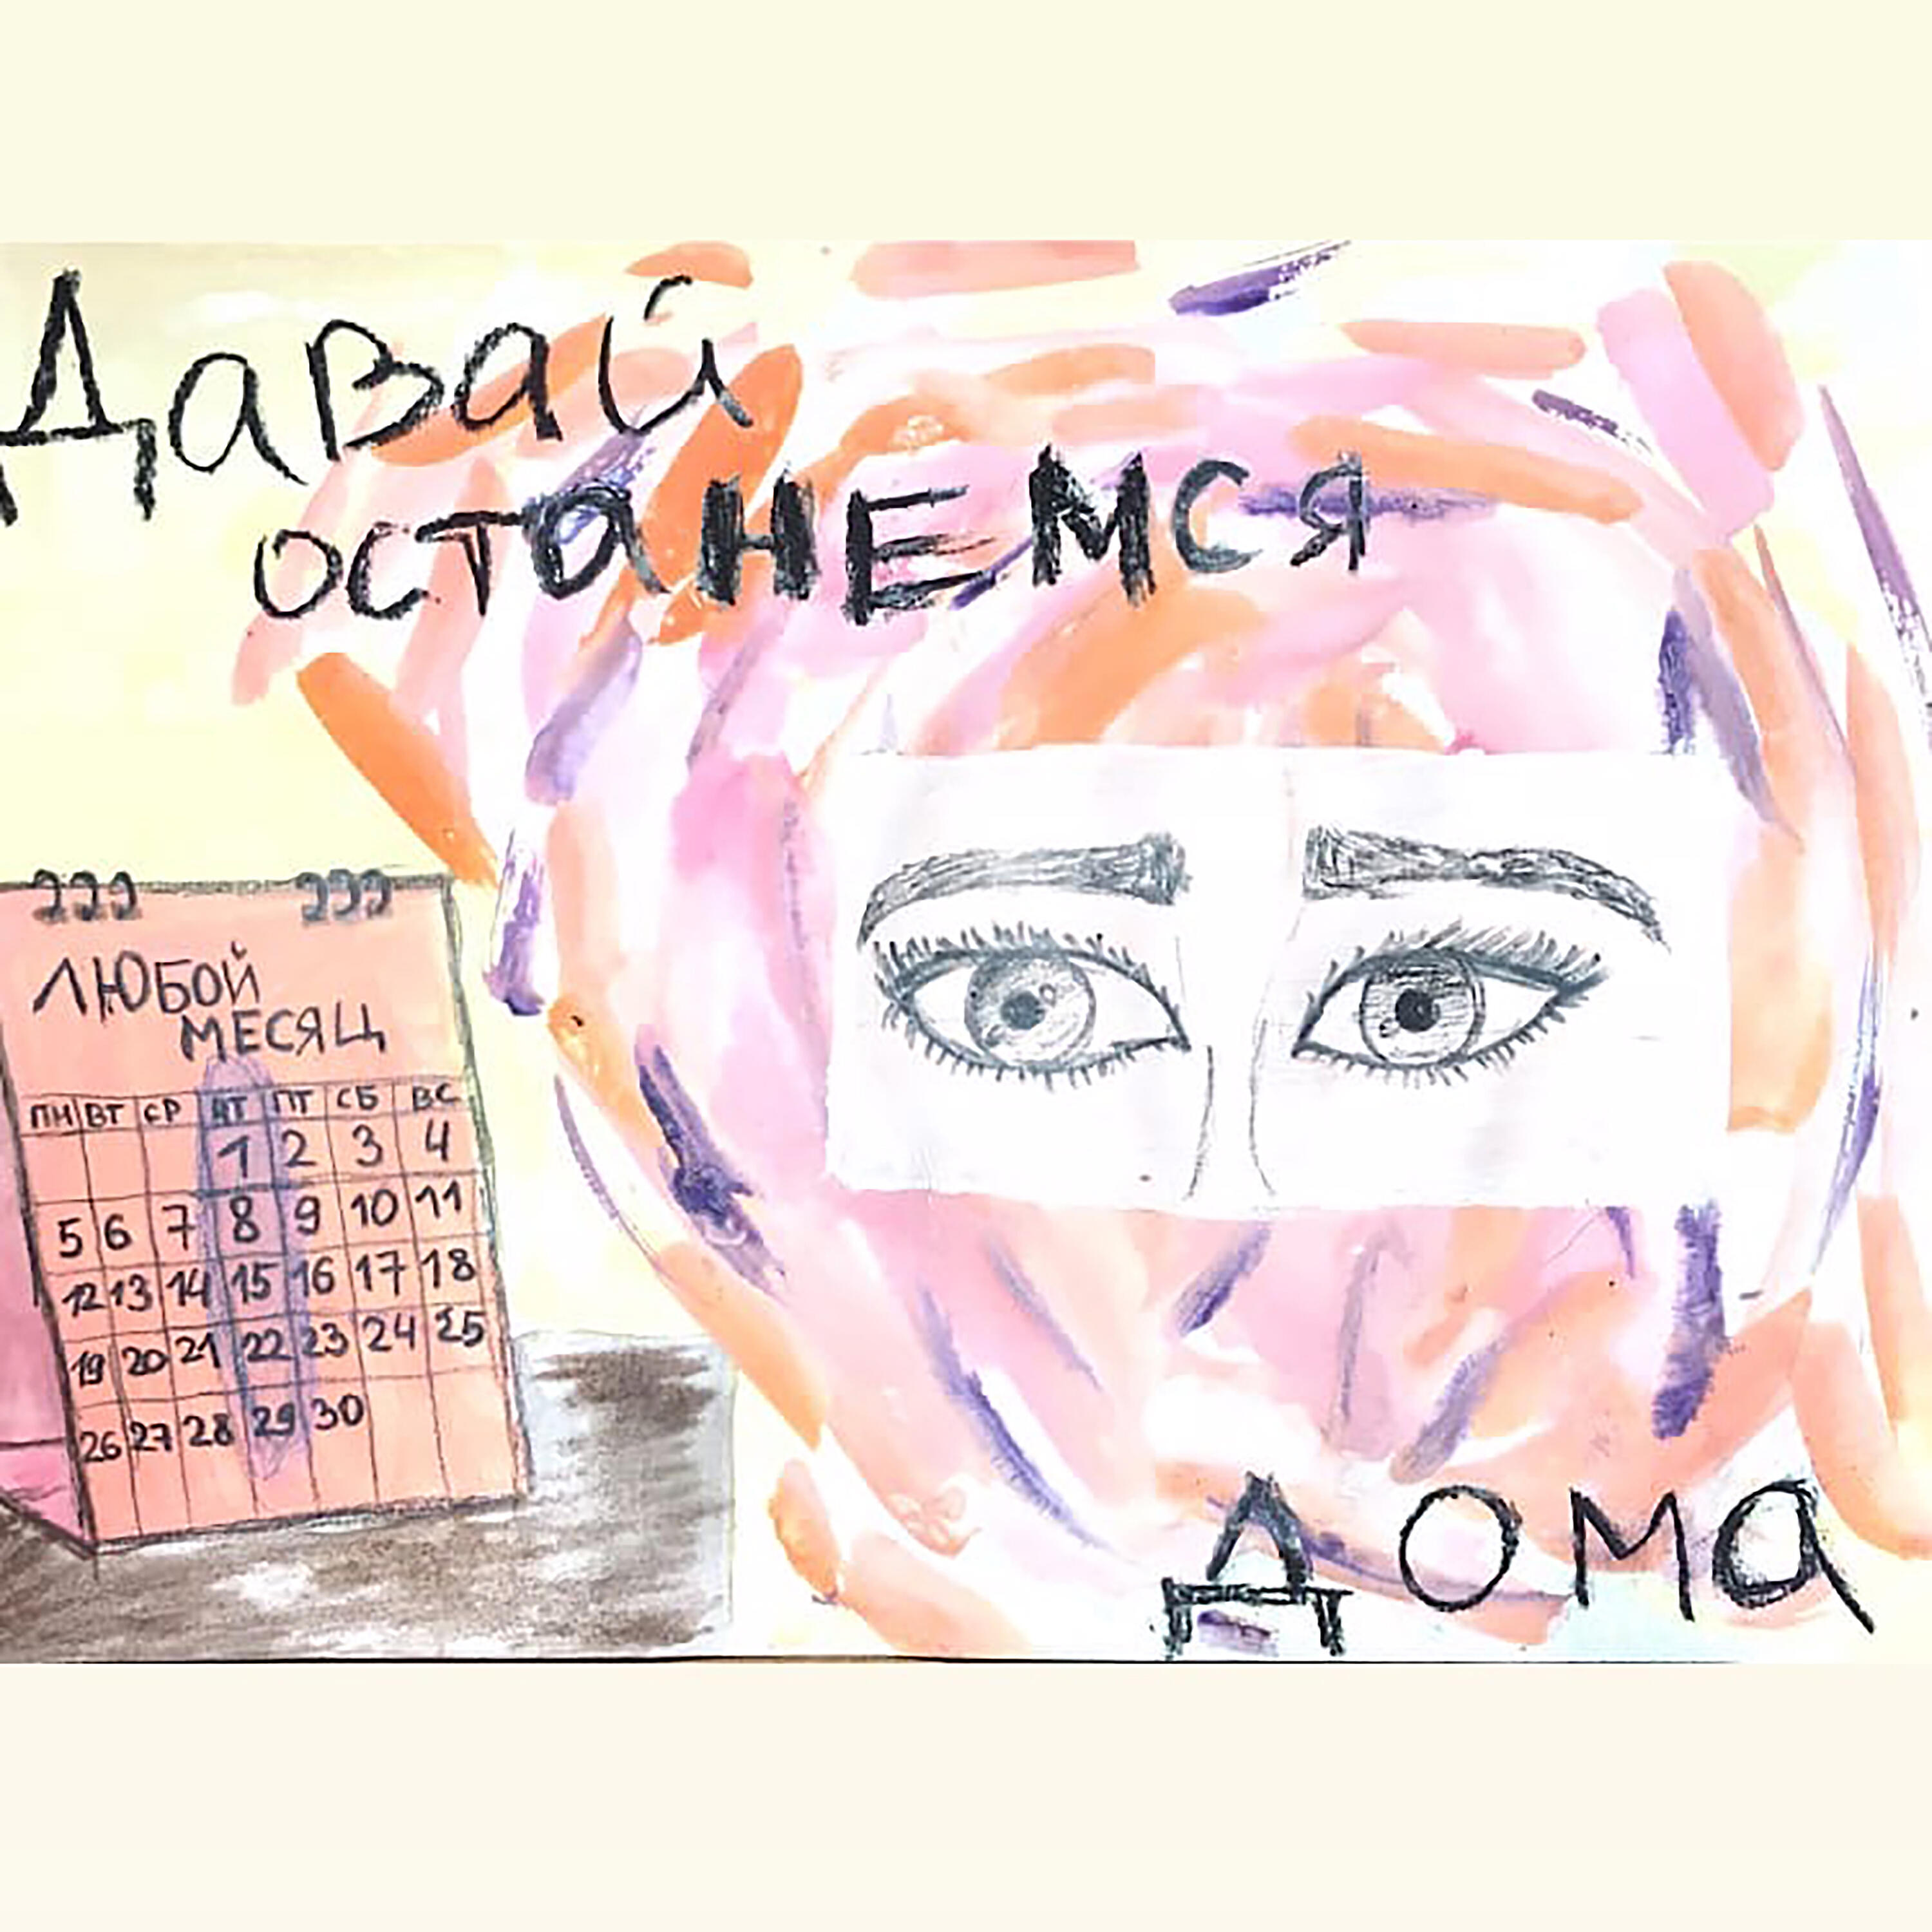 Давай
останемся
ЛЮБОЙ
МЕСЯЦ
ПН ВТ СР ЧТ ПТ СБ ВС
1 2 3 4
5 6 7 8 9 10 11
12 13 14 15 16 17 18
19 20 21 22 23 24 25
26 27 28 29 30
Дома